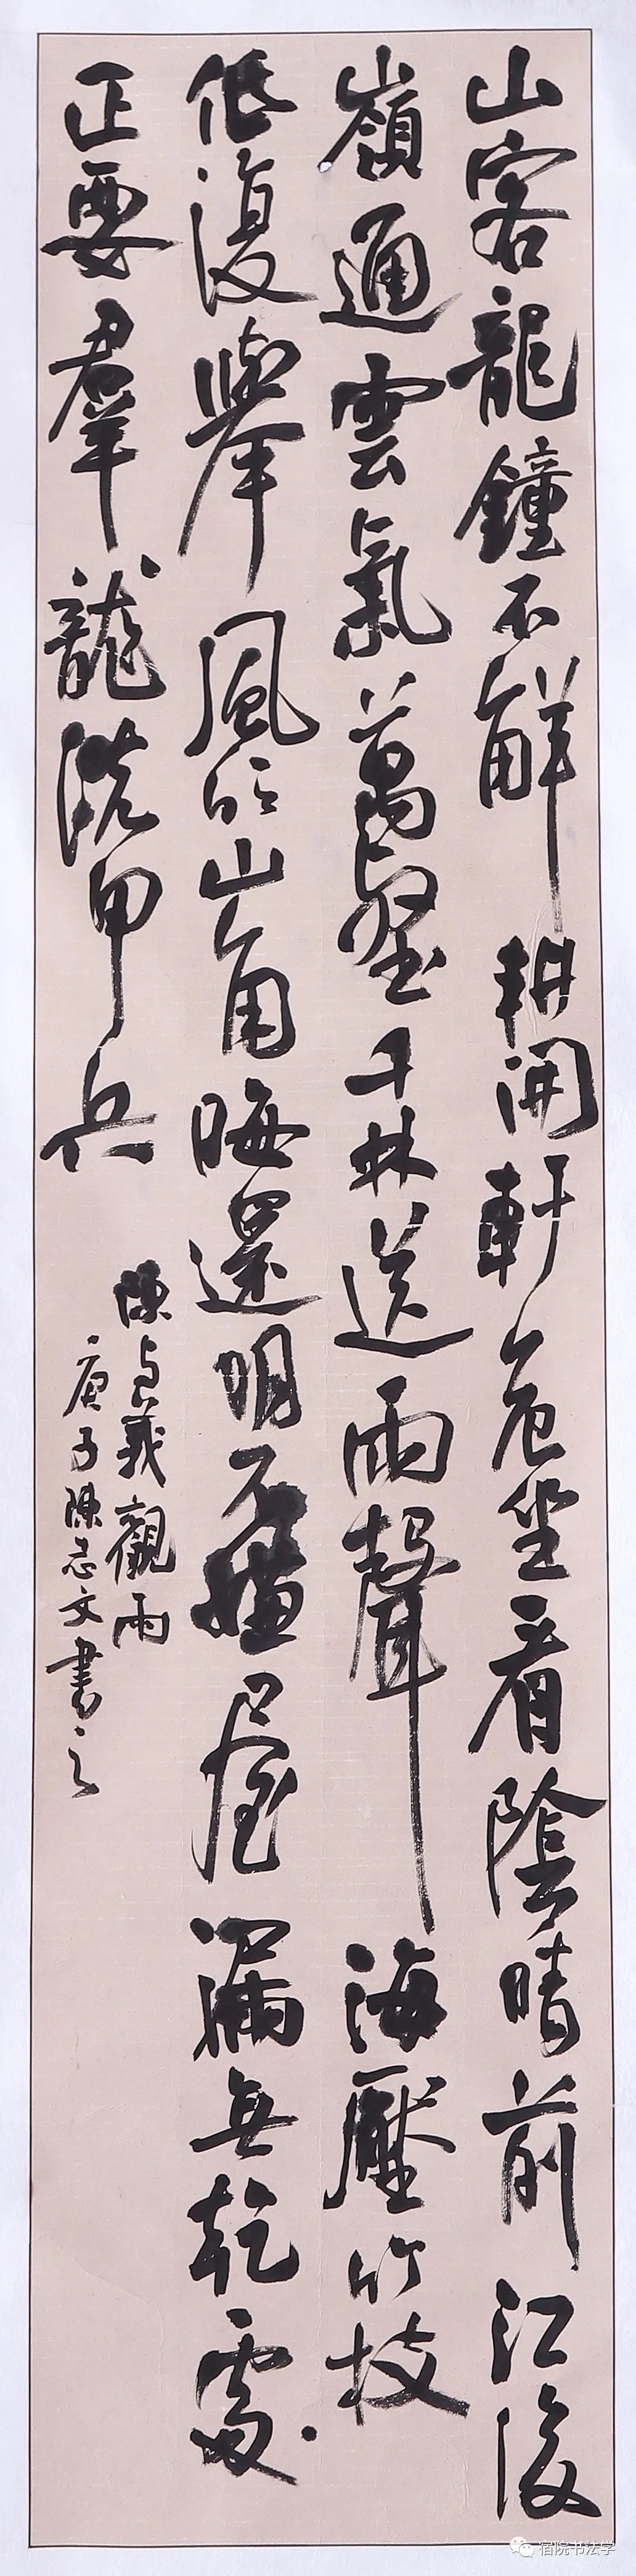 山客龍鐘不解耕開軒危坐看陰晴前江後
嶺通雲氣萬壑千林送雨聲海壓竹枝
低復舉風吹山角晦還明不嫌屋漏無乾處
正要羣龍洗甲兵
陳与義觀雨
庚子陳志文書之
宿院书法学